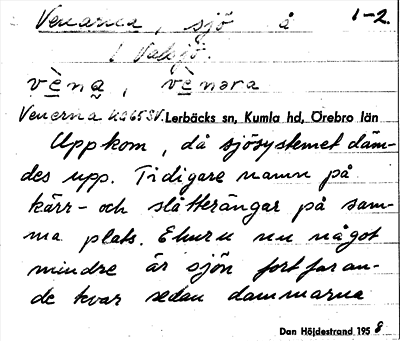 Venarna, sjö å 1-2.
i Valsjö.
vè̱na̱, vè̱nəra
Venerna US65SV. Lerbäcks sn, Kumla hd, Örebro län
Uppkom, då sjösystemet däm-
des upp. Tidigare namn på
kärr- och slåtterängar på sam-
ma plats. Ehuru nu något
mindre är sjön fortfaran-
de kvar sedan dammarna
Dan Höjdestrand 1958